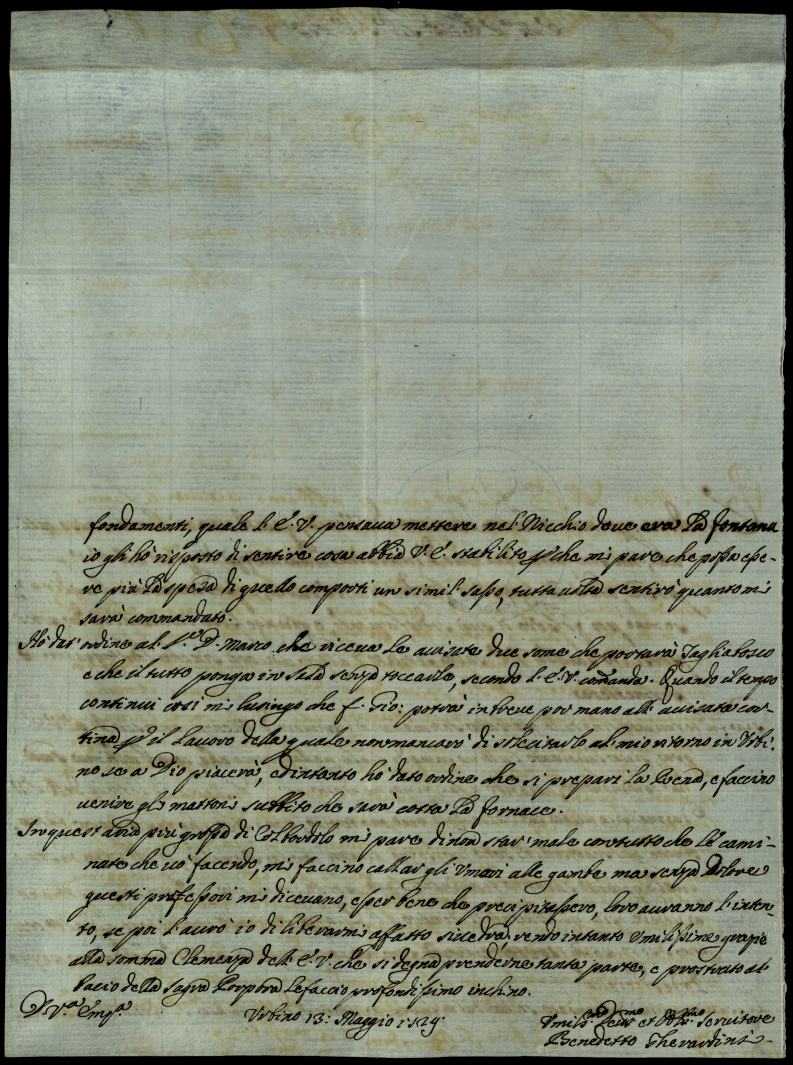 fondamenti, quale l'E. V. pensava mettere nel Nicchio dove era la fontana
io gli hò risposto di sentire cosa abbia V. E. stabilito p che mi pare che possa esse-
re più la spesa di quello comporti un simil sasso, tutta volta sentirò quanto mi
sarà commandato.
Hò dat' ordine al S.re D. Marco che riceva le avisate due some che portarà Tagliabosco
e che il tutto ponga in Sala senza toccarle, secondo l'E. V. comanda. Quando il tempo
continui così mi lusingo che f. Gio: potrà in breve por mano all' avisata cor-
tina p il lavoro della quale non mancarò di solecitarlo al mio ritorno in Urbi-
no se a Dio piacerà, ed intanto hò dato ordine che si prepari la rena, e faccino
venire gli mattoni subbito che sarà cotta la fornace.
In quest' aria più grossa di Colbordolo mi pare di non star' male con tutto che le cami-
nate che vò facendo, mi faccino callar gli umori alle gambe ma senza dolore
questi professori mi dicevano, esser bene che precipitassero, loro avranno l'inten-
to, se poi l'avrò io di liberarmi affatto si vedrà; rendo intanto umilissime grazie
alla somma Clemenza dell' E. V. che si degna prenderne tanta parte, e prostrato al
bacio della Sagra Porpora le faccio profondissimo inchino.
D. V.ra Em.za
Urbino 13: Maggio 1729.
Umil.mo Dev.mo et Obbl.mo Servitore
Benedetto Gherardini